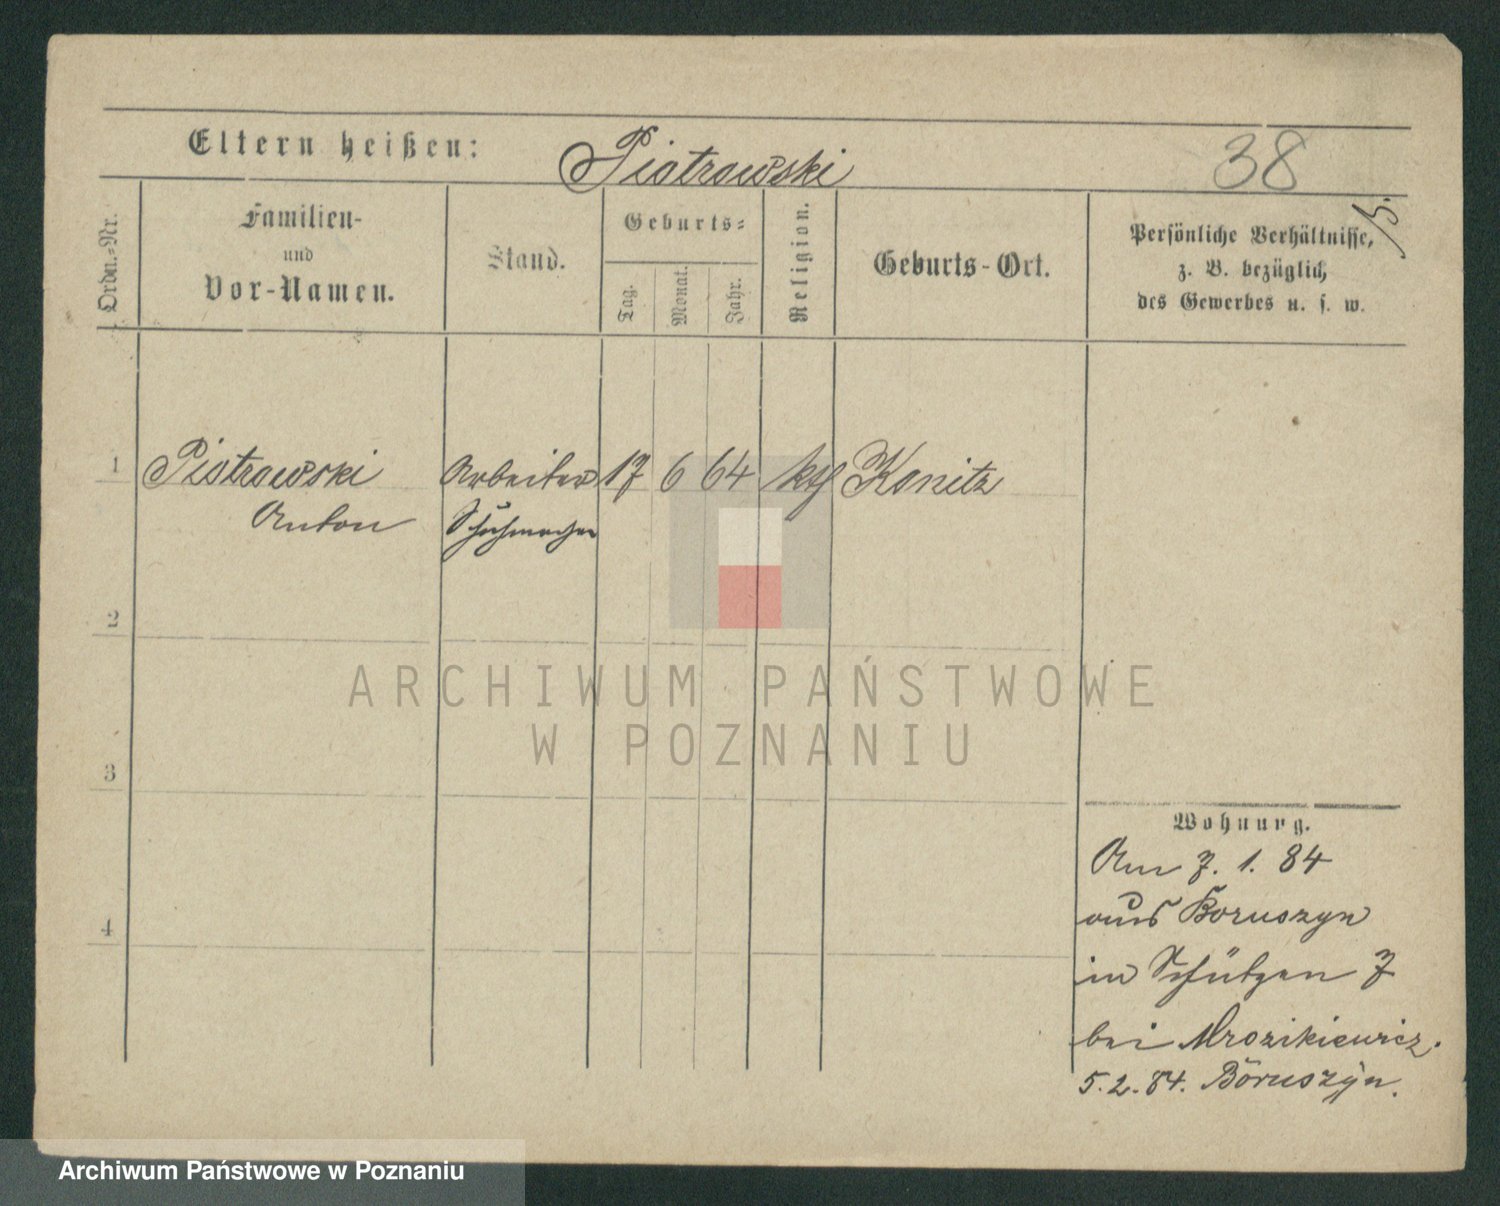 Eltern heißen: Piotrowski 38
Ordn.-Nr.
Familien-
und
Vor-Namen.
Stand.
Geburts-
Tag. Monat. Jahr.
Religion.
Geburts-Ort.
Persönliche Verhältnisse,
z. B. bezüglich
des Gewerbes u. s. w.
1 Piotrowski Arbeiter 17 6 64 kth Konitz
Anton Schuhmacher
2
3
4
Wohnung.
Am 7. 1. 84
aus Boruszyn
in Schützen 7
bei Mrozikiewicz.
5. 2. 84. Boruszyn.
ARCHIWUM PAŃSTWOWE
W POZNANIU
Archiwum Państwowe w Poznaniu